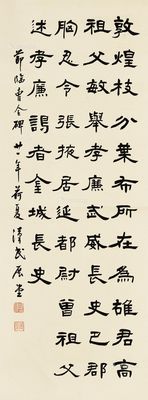 敦煌枝分葉布所在為雄君高
祖父敏舉孝廉武威長史巴郡
朐忍令張掖居延都尉曾祖父
述孝廉謁者金城長史
節臨曹全碑 年夏 漢民展堂